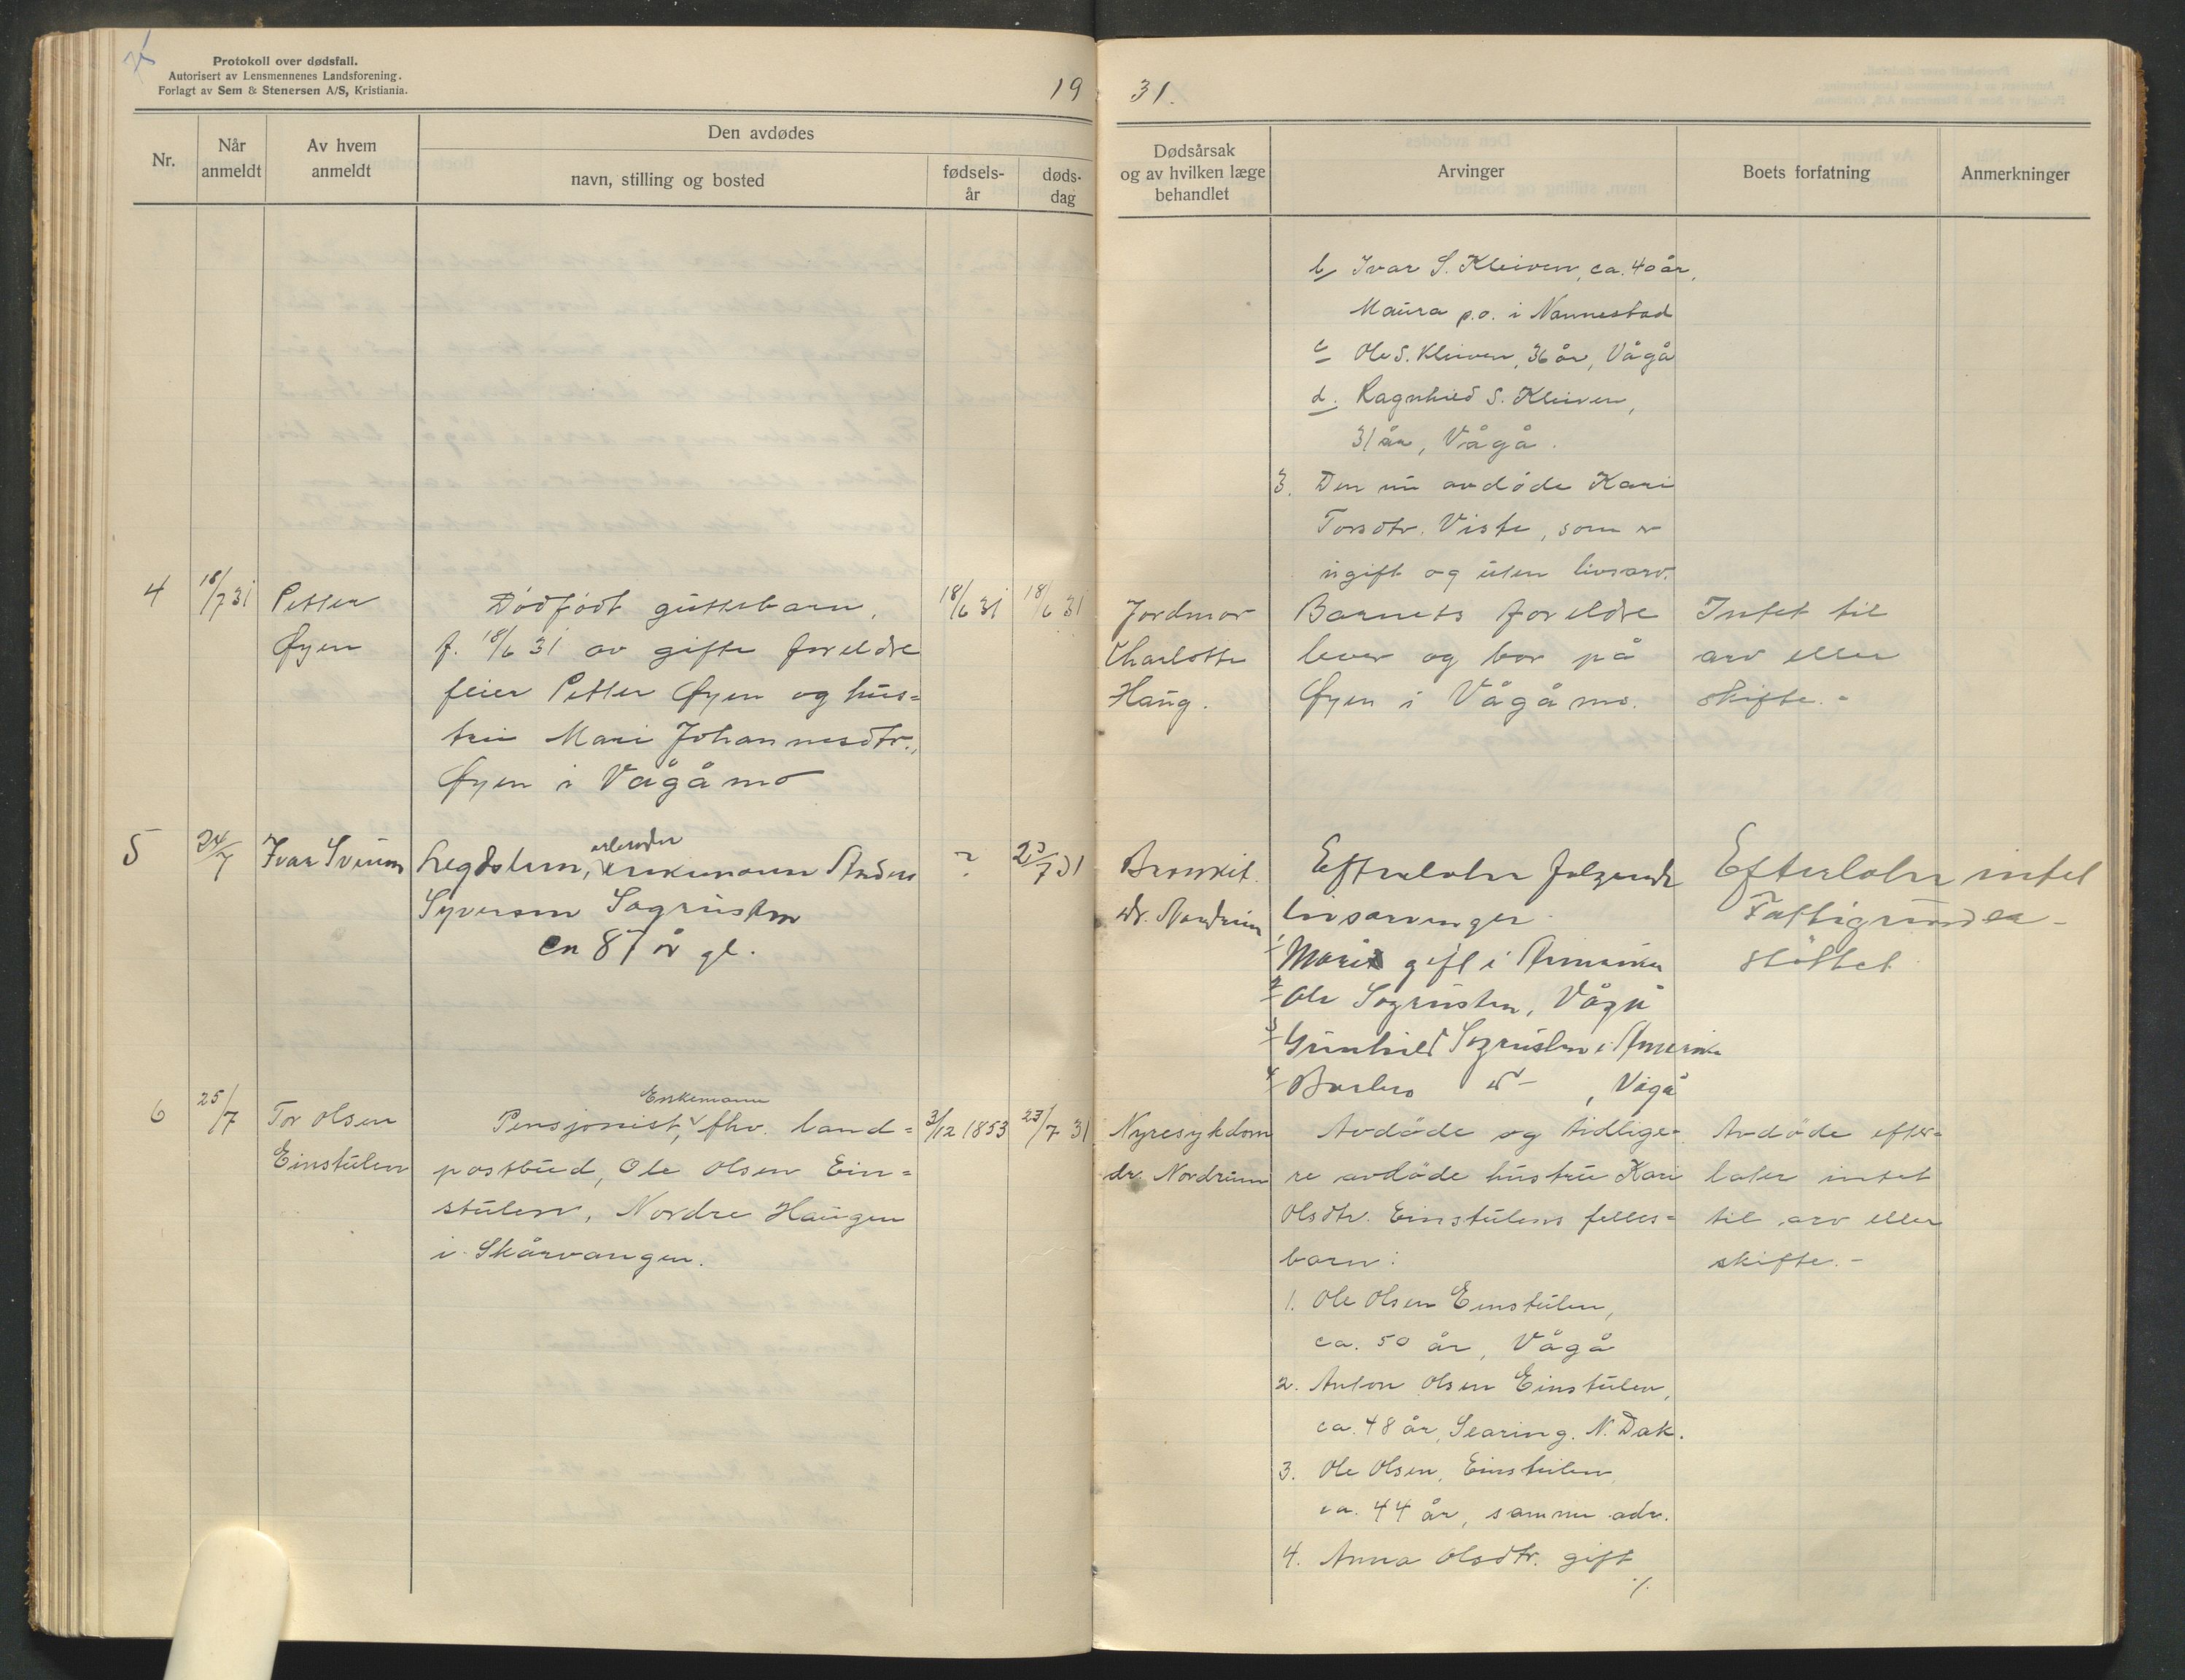 Protokoll over dødsfall.
Autorisert av Lensmennenes Landsforening.
Forlagt av Sem & Stenersen A/S, Kristiania.
19 31.
Nr.
Når anmeldt
Av hvem anmeldt
Den avdødes
navn, stilling og bosted
fødselsår
døds-dag
Dødsårsak
og av hvilken læge
behandlet
Arvinger
Boets forfatning
Anmerkninger
b/ Ivar S. Kleiven, ca. 40 år,
Maura p.o. i Nannestad
c Ole S. Kleiven, 36 år, Vågå
d. Ragnhild S. Kleiven,
31 år, Vågå.
3. Den nu avdøde Kari
Torsdtr. Viste, som er
ugift og uten livsarv.
4
18/7 31
Petter
Øyen
Dødfødt guttebarn,
f. 18/6 31 av gifte foreldre
feier Petter Øyen og hus=
tru Mari Johannesdtr.,
Øyen i Vågåmo
18/6 31
18/6 31
Jordmor
Charlotte
Haug.
Barnets foreldre
lever og bor på
Øyen i Vågåmo.
Intet til
arv eller
skifte.-
5
24/7
Ivar Sveum
Legdslem, enkemann Anders
Syversen Sagrusten
ca 87 år gl.
?
23/7 31
Bronkit.
dr. Nordrum
Efterlater følgende
livsarvinger
1 Marit gift i Amerika
2 Ole Sagrusten, Vågå
3 Gunhild Sagrusten i Amerika
4 Barbro d- , Vågå
Efterlater intet
Fattigunder-
støttet
6
25/7
Tor Olsen
Einstulen
Enkemann
Pensjonist, fhv. land=
postbud, Ole Olsen Ein=
stulen, Nordre Haugen
i Skårvangen.
3/12 1853
23/7 31
Nyresykdom
dr. Nordrum
Avdøde og tidlige=
re avdøde hustru Kari
Olsdtr. Einstulens felles=
barn:
1. Ole Olsen Einstulen,
ca. 50 år, Vågå
2. Anton Olsen Einstulen,
ca. 48 år, Searing. N. Dak.
3. Ole Olsen Einstulen,
ca. 44 år, samme adr.
4. Anna Olsdtr. gift
./.
Avdøde efter=
later intet
til arv eller
skifte.-